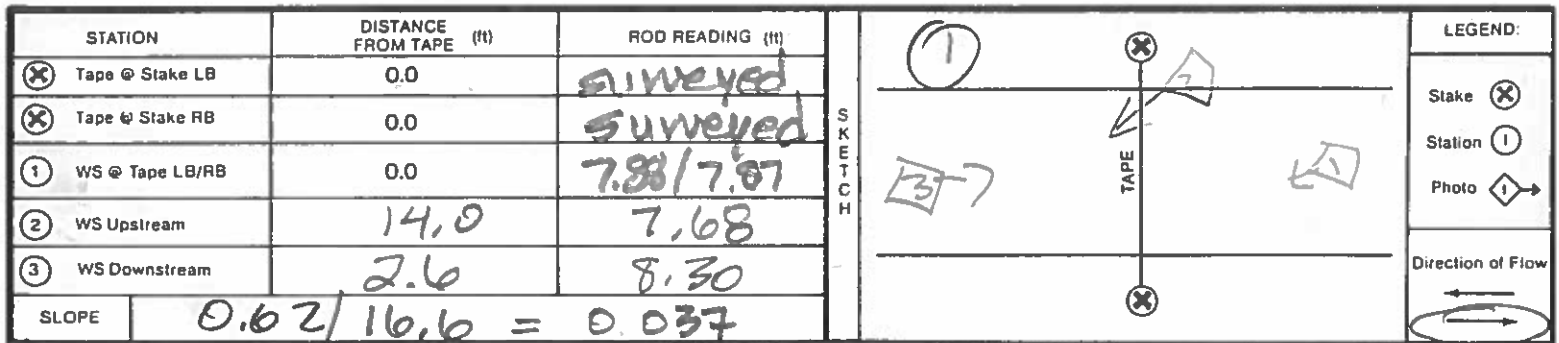 STATION DISTANCE FROM TAPE (ft) ROD READING (ft)
Tape @ Stake LB 0.0 surveyed
Tape @ Stake RB 0.0 surveyed
1 WS @ Tape LB/RB 0.0 7.88/7.87
2 WS Upstream 14.0 7.68
3 WS Downstream 2.6 8.30
SLOPE 0.62/16.6 = 0.037
SKETCH
1
2
TAPE
3
1
LEGEND:
Stake
Station 1
Photo 1
Direction of Flow